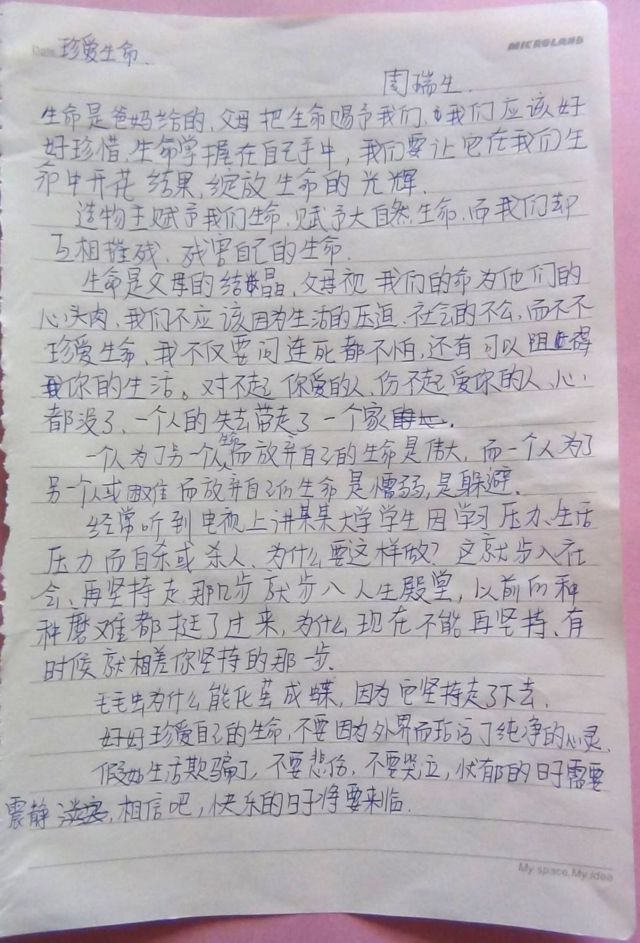 Date 珍爱生命.
MICROLAND
周瑞生.
生命是爸妈给的、父母把生命赐予我们、我们应该好
好珍惜、生命掌握在自己手中，我们要让它在我们生
命中开花结果、绽放生命的光辉.
造物主赋予我们生命、赋予大自然生命、而我们却
互相摧残、残害自己的生命.
生命是父母的结晶、父母视我们的命为他们的
心头肉、我们不应该因为生活的压迫、社会的不公、而不
珍爱生命、我不仅要问连死都不怕、还有可以阻
你的生活。对不起你爱的人、伤不起爱你的人、心
都没了、一个人的失去带走了一个家.
一个人为了另一个人生命而放弃自己的生命是伟大，而一个人为了
另一个人或困难而放弃自己的生命是懦弱，是躲避.
经常听到电视上讲某某大学学生因学习压力、生活
压力而自杀或杀人、为什么要这样做？这就步入社
会、再坚持走那几步就步入人生殿堂，以前的种
种磨难都挺了过来，为什么现在不能再坚持、有
时候就相差你坚持的那一步.
毛毛虫为什么能化茧成蝶，因为它坚持走了下去.
好好珍爱自己的生命，不要因为外界而玷污了纯净的心灵.
假如生活欺骗了，不要悲伤，不要哭泣，忧郁的日子需要
震静，相信吧，快乐的日子将要来临.
My space. My idea